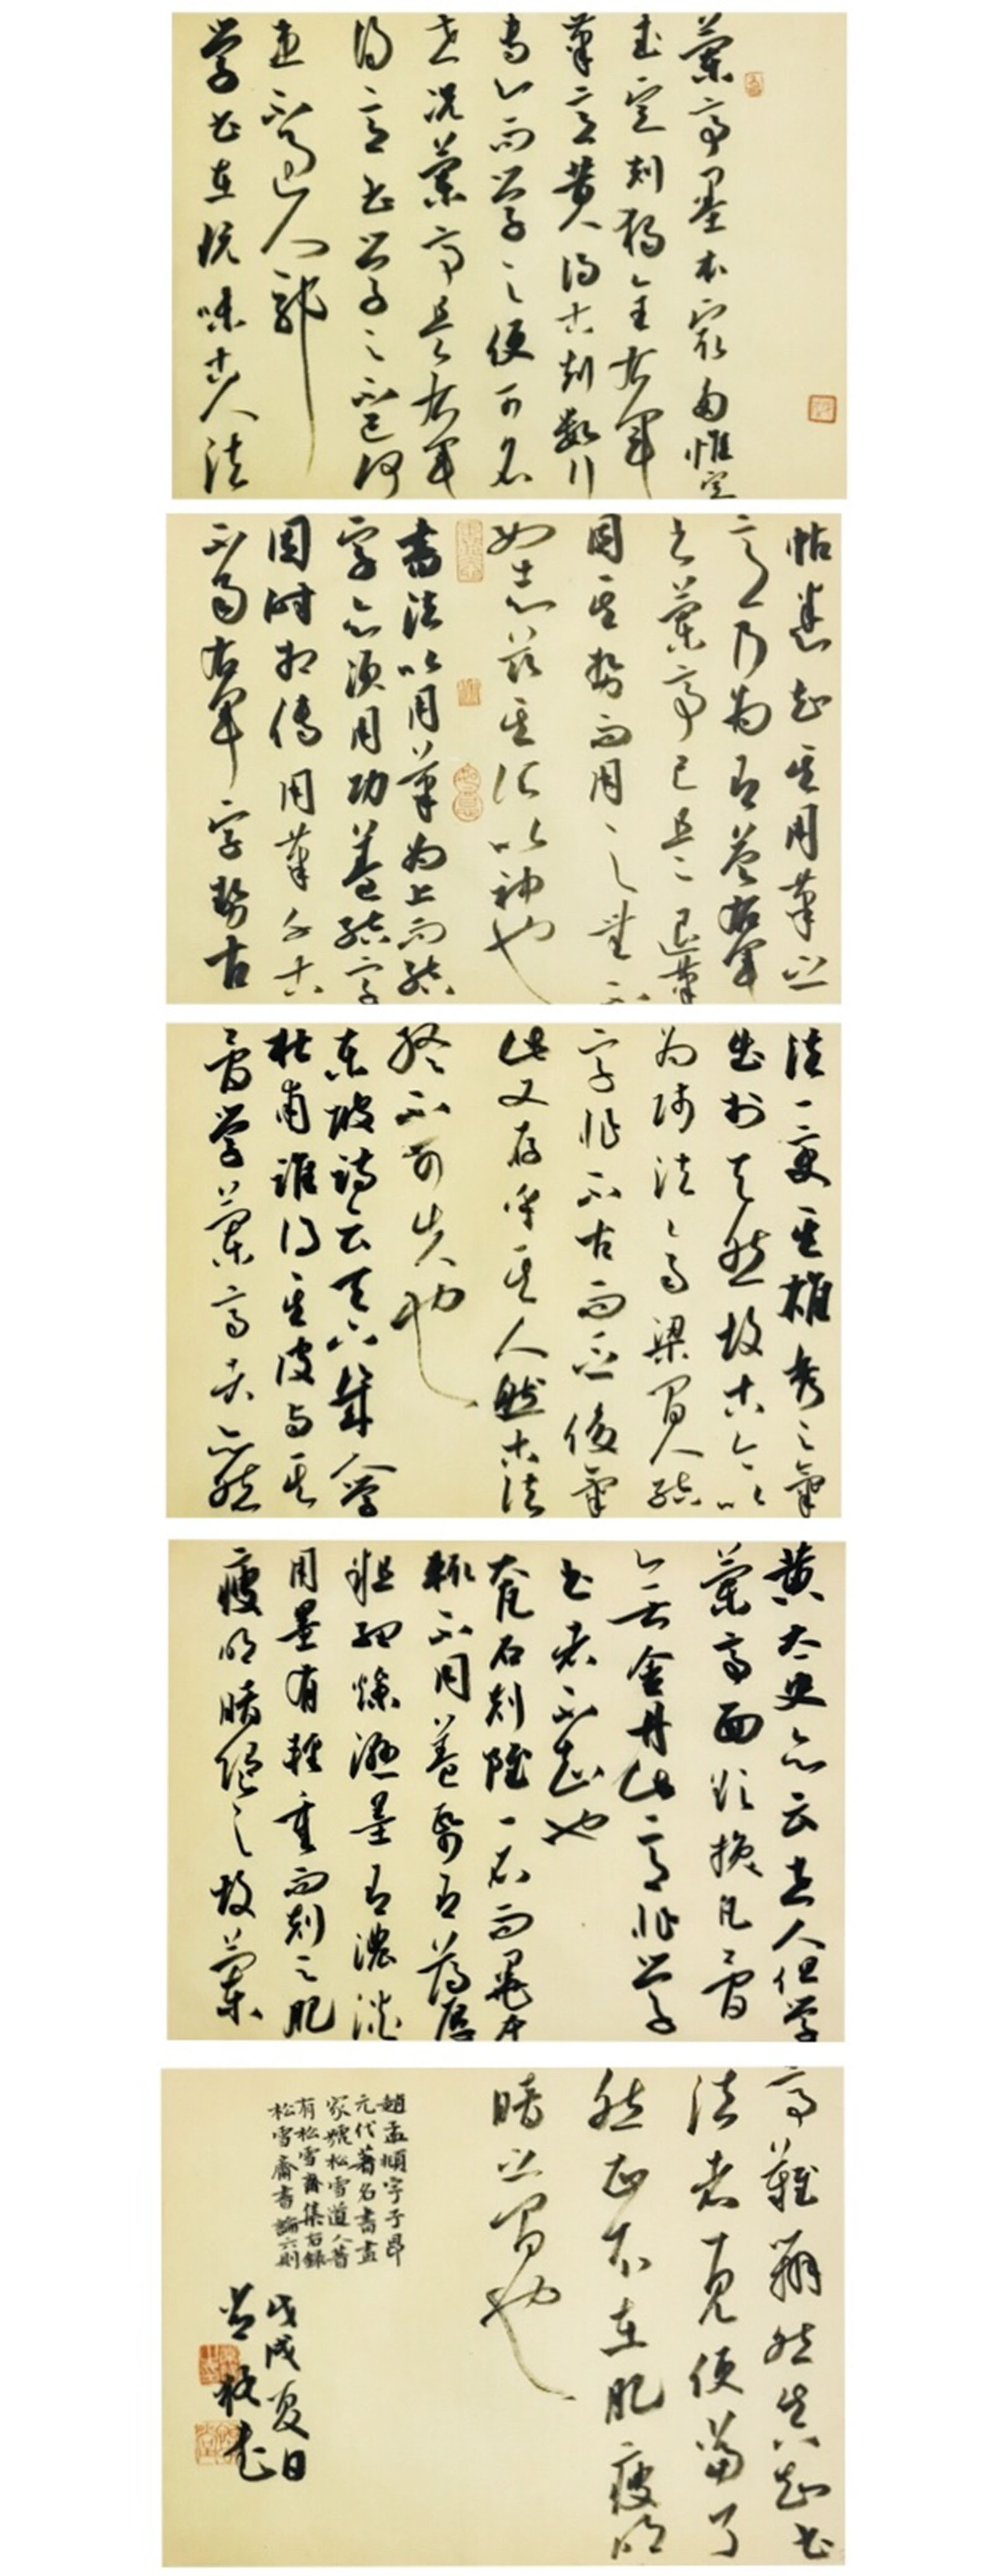 蘭亭墨本最多惟定
武定刻獨全右軍
筆意昔人得古刻數行
專心而學之便可名
世況蘭亭是右軍
得意書學之不已何
患不過人耶
學書在玩味古人法
帖悉知其用筆之
意乃為有益右軍
書蘭亭已是退筆
因其勢而用之無不
如志茲其所以神也
書法以用筆為上而結
字亦須用功蓋結字
因時相傳用筆千古
不易右軍字勢古
法一變其雄秀之氣
出於天然故古今以
為師法齊梁間人結
字非不古而乏俊氣
此又存乎其人然古法
終不可失也
東坡詩云天下幾人學
杜甫誰得其皮與其
骨學蘭亭者亦然
黃太史亦云世人但學
蘭亭面欲換凡骨
無金丹此意非學
書者不知也
大凡石刻雖一石而墨本
輒不同蓋紙有薄厚
粗細燥濕墨有濃淡
用墨有輕重而刻之肥
瘦明暗隨之故蘭
亭難辨然真知書
法者一見便當了
然正不在肥瘦明
暗之間也
趙孟頫字子昂
元代著名書畫
家號松雪道人著
有松雪齋集右錄
松雪齋書論六則
戊戌夏日
書